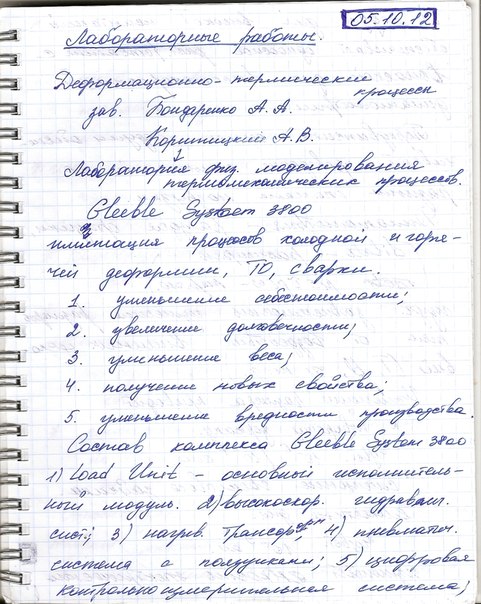 05.10.12
Лабораторные работы.
Деформационно-термические
процессы
зав. Бондаренко А. А.
Коритицкий А.В.
Лаборатория физ. моделирования
термомеханических процессов.
Gleeble System 3800
имитация процессов холодной и горя-
чей деформации, ТО, сварки.
1. уменьшение себестоимости;
2. увеличение долговечности;
3. уменьшение веса;
4. получение новых свойства;
5. уменьшение вредности производства.
Состав комплекса Gleeble System 3800
1) Load Unit – основный исполнитель-
ный модуль. 2) высокоскор. гидравлич.
сист.; 3) нагрев. трансформ, 4) пневматич.
система с ползунками; 5) цифровая
контрольноизмерительная система;